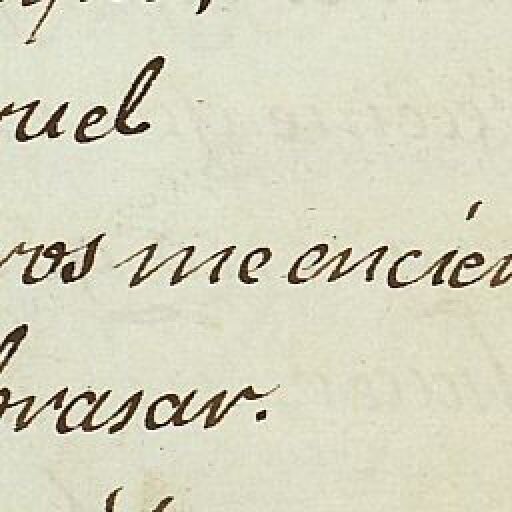 ruel
ros me encien
brasar.